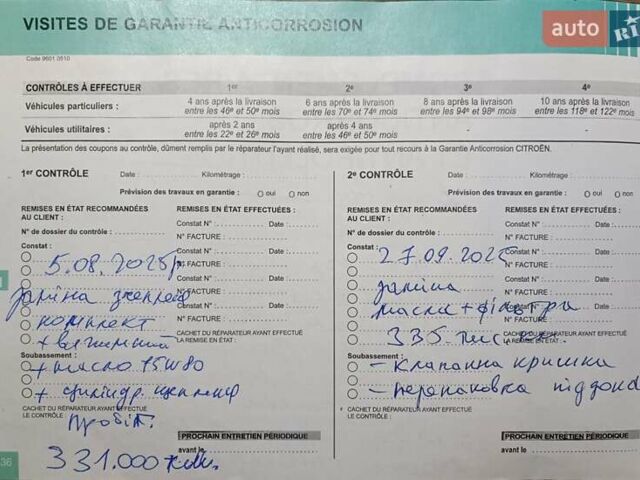 VISITES DE GARANTIE ANTICORROSION
auto RI
Code 9601 0510
CONTRÔLES À EFFECTUER 1er 2e 3e 4e
Véhicules particuliers : 4 ans après la livraison entre les 46e et 50e mois 6 ans après la livraison entre les 70e et 74e mois 8 ans après la livraison entre les 94e et 98e mois 10 ans après la livraison entre les 118e et 122e mois
Véhicules utilitaires : après 2 ans entre les 22e et 26e mois après 4 ans entre les 46e et 50e mois - -
La présentation des coupons au contrôle, dûment remplis par le réparateur l'ayant réalisé, sera exigée pour tout recours à la Garantie Anticorrosion CITROËN.
1er CONTRÔLE Date : Kilométrage :
Prévision des travaux en garantie : oui non
REMISES EN ÉTAT RECOMMANDÉES AU CLIENT :
N° de dossier du contrôle :
Constat :
5.08.2025р
заміна зчеплення
комплект
+ вижимний
Soubassement :
+ масло 75W80
+ циліндр. зчеплення
CACHET DU RÉPARATEUR AYANT EFFECTUÉ LE CONTRÔLE :
пробіг.
331.000 км.
REMISES EN ÉTAT EFFECTUÉES :
Constat N° : Date :
N° FACTURE :
Constat N° : Date :
N° FACTURE :
Constat N° : Date :
N° FACTURE :
CACHET DU RÉPARATEUR AYANT EFFECTUÉ LA REMISE EN ÉTAT :
PROCHAIN ENTRETIEN PÉRIODIQUE
avant le
2e CONTRÔLE Date : Kilométrage :
Prévision des travaux en garantie : oui non
REMISES EN ÉTAT RECOMMANDÉES AU CLIENT :
N° de dossier du contrôle :
Constat :
27.09.2025
заміна
масла + фільтра
335 тис
Soubassement :
- клапанна кришка
- перепаковка піддона
CACHET DU RÉPARATEUR AYANT EFFECTUÉ LE CONTRÔLE :
REMISES EN ÉTAT EFFECTUÉES :
Constat N° : Date :
N° FACTURE :
Constat N° : Date :
N° FACTURE :
CACHET DU RÉPARATEUR AYANT EFFECTUÉ LA REMISE EN ÉTAT :
PROCHAIN ENTRETIEN PÉRIODIQUE
avant le
36